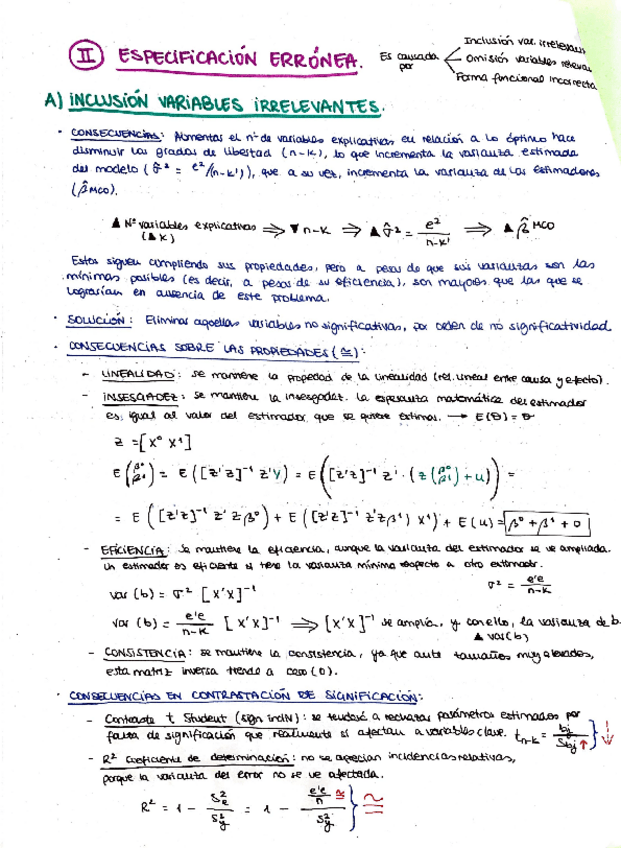 II ESPECIFICACIÓN ERRÓNEA. Es causada por
Inclusión var. irrelevantes
Omisión variables relevan
Forma funcional incorrecta
A) INCLUSIÓN VARIABLES IRRELEVANTES.
· CONSECUENCIAS: Aumentar el nº de variables explicativas en relación a lo óptimo hace
disminuir los grados de libertad (n-k), lo que incrementa la varianza estimada
del modelo (σ̂² = e²/(n-k')), que a su vez, incrementa la varianza de los estimadores
(β̂ MCO).
▲ Nº variables explicativas ⇒ ▼ n-k ⇒ ▲ σ̂² = e²/(n-k') ⇒ ▲ β̂ MCO
(▲ k)
Estos siguen cumpliendo sus propiedades, pero a pesar de que sus varianzas son las
mínimas posibles (es decir, a pesar de su eficiencia), son mayores que las que se
lograrían en ausencia de este problema.
· SOLUCIÓN: Eliminar aquellas variables no significativas, por orden de no significatividad.
· CONSECUENCIAS SOBRE LAS PROPIEDADES (≅):
- LINEALIDAD: se mantiene la propiedad de la linealidad (rel. lineal entre causa y efecto).
- INSESGADEZ: se mantiene la insesgadez. la esperanza matemática del estimador
es igual al valor del estimador que se quiere estimar. → E(θ) = θ
Z = [X⁰ X¹]
E(β⁰ β¹) = E([Z'Z]⁻¹ Z'Y) = E([Z'Z]⁻¹ Z' · (Z(β⁰ β¹) + u)) =
= E([Z'Z]⁻¹ Z' Z β⁰) + E([Z'Z]⁻¹ Z'Zβ¹) X¹) + E(u) = β⁰ + β¹ + 0
- EFICIENCIA: Se mantiene la eficiencia, aunque la varianza del estimador se ve ampliada.
Un estimador es eficiente si tiene la varianza mínima respecto a otro estimador.
var (b) = σ² [X'X]⁻¹ σ² = e'e/n-k
var (b) = e'e/n-k [X'X]⁻¹ ⇒ [X'X]⁻¹ se amplía, y con ello, la varianza de b.
▲ var(b)
- CONSISTENCIA: se mantiene la consistencia, ya que ante tamaños muy elevados,
esta matriz inversa tiende a cero (0).
· CONSECUENCIAS EN CONTRASTACIÓN DE SIGNIFICACIÓN:
- Contraste t Student (sign indiv): se tenderá a rechazar parámetros estimados por
falta de significación que realmente sí afectan a variables clave. t n-k = bj/Sbj ↑ } ↓
- R² coeficiente de determinación: no se aprecian incidencias relativas,
porque la varianza del error no se ve afectada.
R² = 1 - S²e/S²y = 1 - (e'e/n ≅)/S²y } ≅